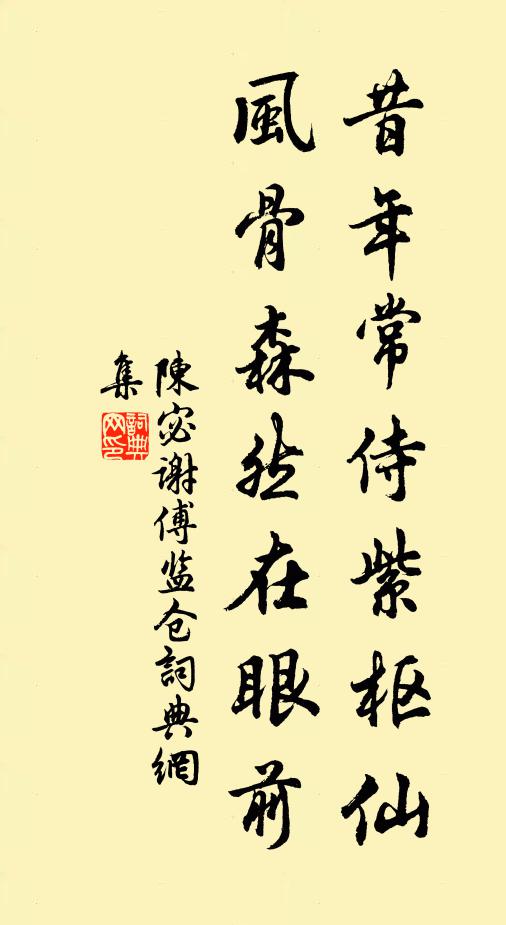 昔年常侍紫枢仙
風骨森然在眼前
陳宓谢傅监仓詞典網
集
詞典网印